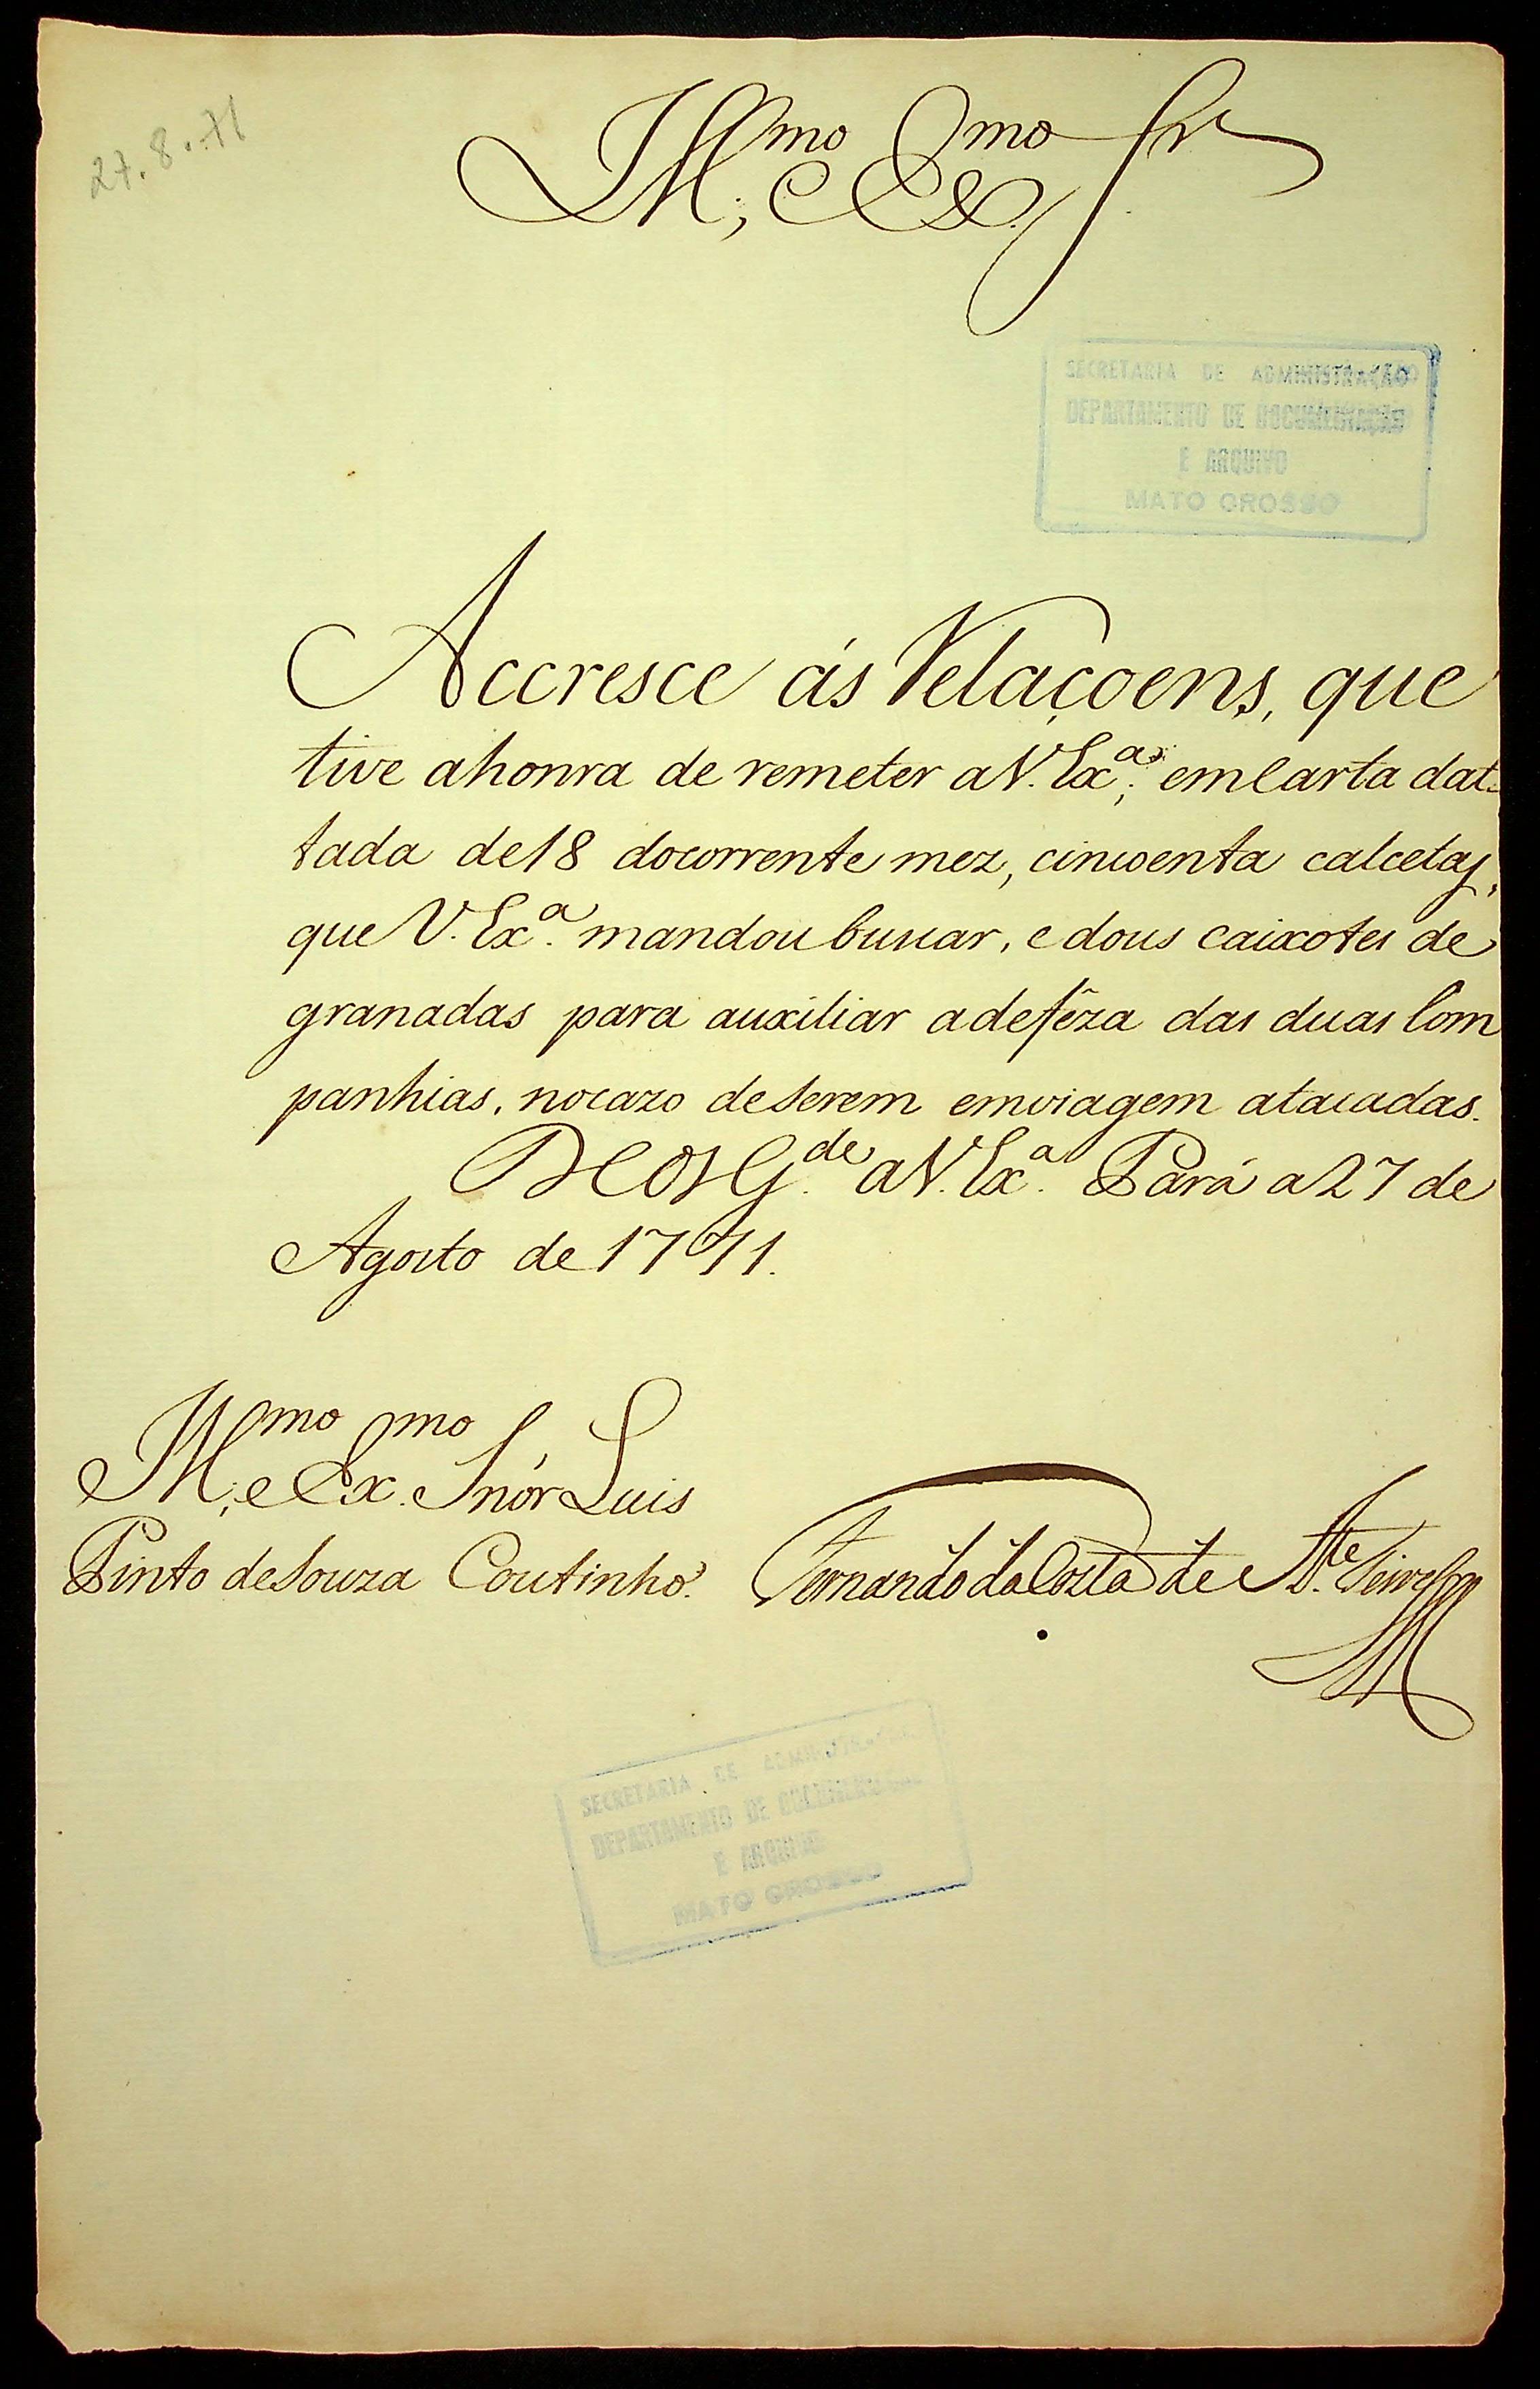 27.8.71
Ill.mo e Ex.mo Sr
SECRETARIA DE ADMINISTRAÇÃO
DEPARTAMENTO DE DOCUMENTAÇÃO
E ARQUIVO
MATO GROSSO
Accresce ás Relaçoens, que
tive ahonra de remeter aV. Ex.as; emCarta dat-
tada de18 docorrente mez, cincoenta calcetas,
que V. Ex.a mandou buscar, e dous caixotes de
granadas para auxiliar adefêza das duas Com
panhias, nocazo deserem emviagem atacadas.
DEOS G.de aV. Ex.a Pará a 27 de
Agosto de 1771.
Ill.mo e Ex.mo Snór Luis
Pinto deSouza Coutinho.
Fernando da Costa de At.de Teive
SECRETARIA DE ADMINISTRAÇÃO
DEPARTAMENTO DE DOCUMENTAÇÃO
E ARQUIVO
MATO GROSSO